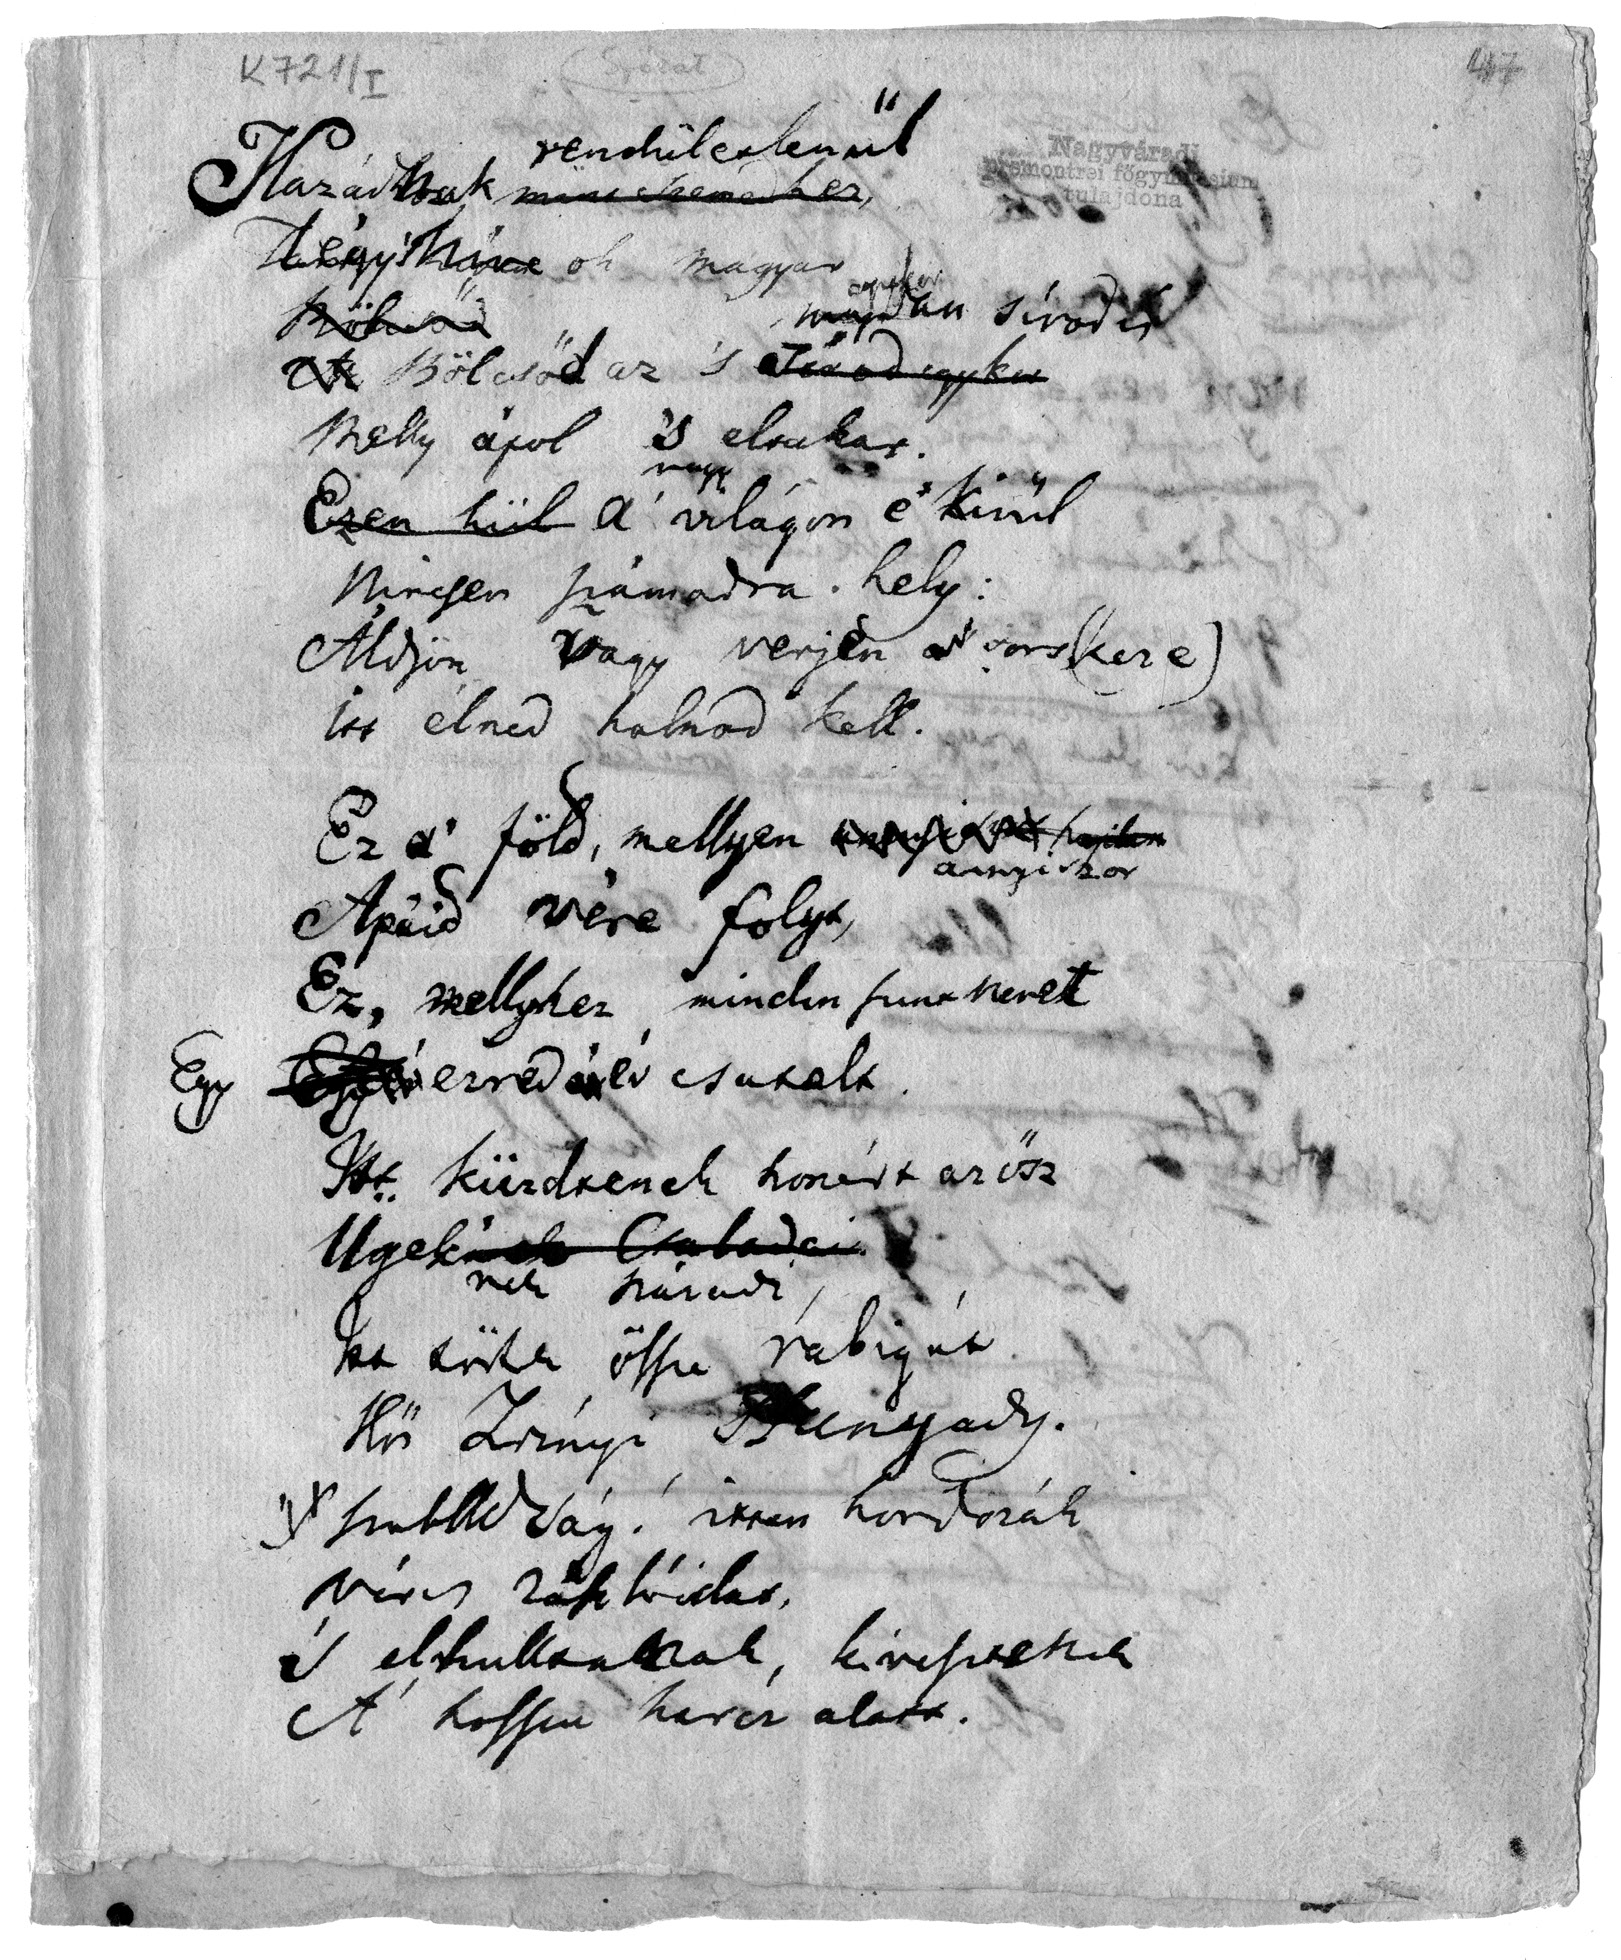 K 721/I
Szózat
47
Nagyváradi
premontrei főgymnasium
tulajdona
rendületlenűl
Hazádnak
Légy híve oh magyar
Bölcsőd
egykor
majdan sírod is
Bölcsőd az 's sírod egykor
Melly ápol 's eltakar.
nagy
Ezen kiűl A' világon e' kivűl
Nincsen számodra hely:
Áldjon vagy verjen a' sors (keze)
Itt élned halnod kell.
Ez a' föld, mellyen
annyiszor
Apáid vére folyt,
Ez, mellyhez minden szent nevet
Egy ezredév csatolt.
Itt küzdtenek honért az ősz
Ügeknek Családai
nek páradi,
Itt törtek össze rabigát
Hős Zrínyi Hunyady.
szabadság! itten hordozák
véres zászlóidat,
és elhulltanak, kivesztenek
A' hosszu harcz alatt.